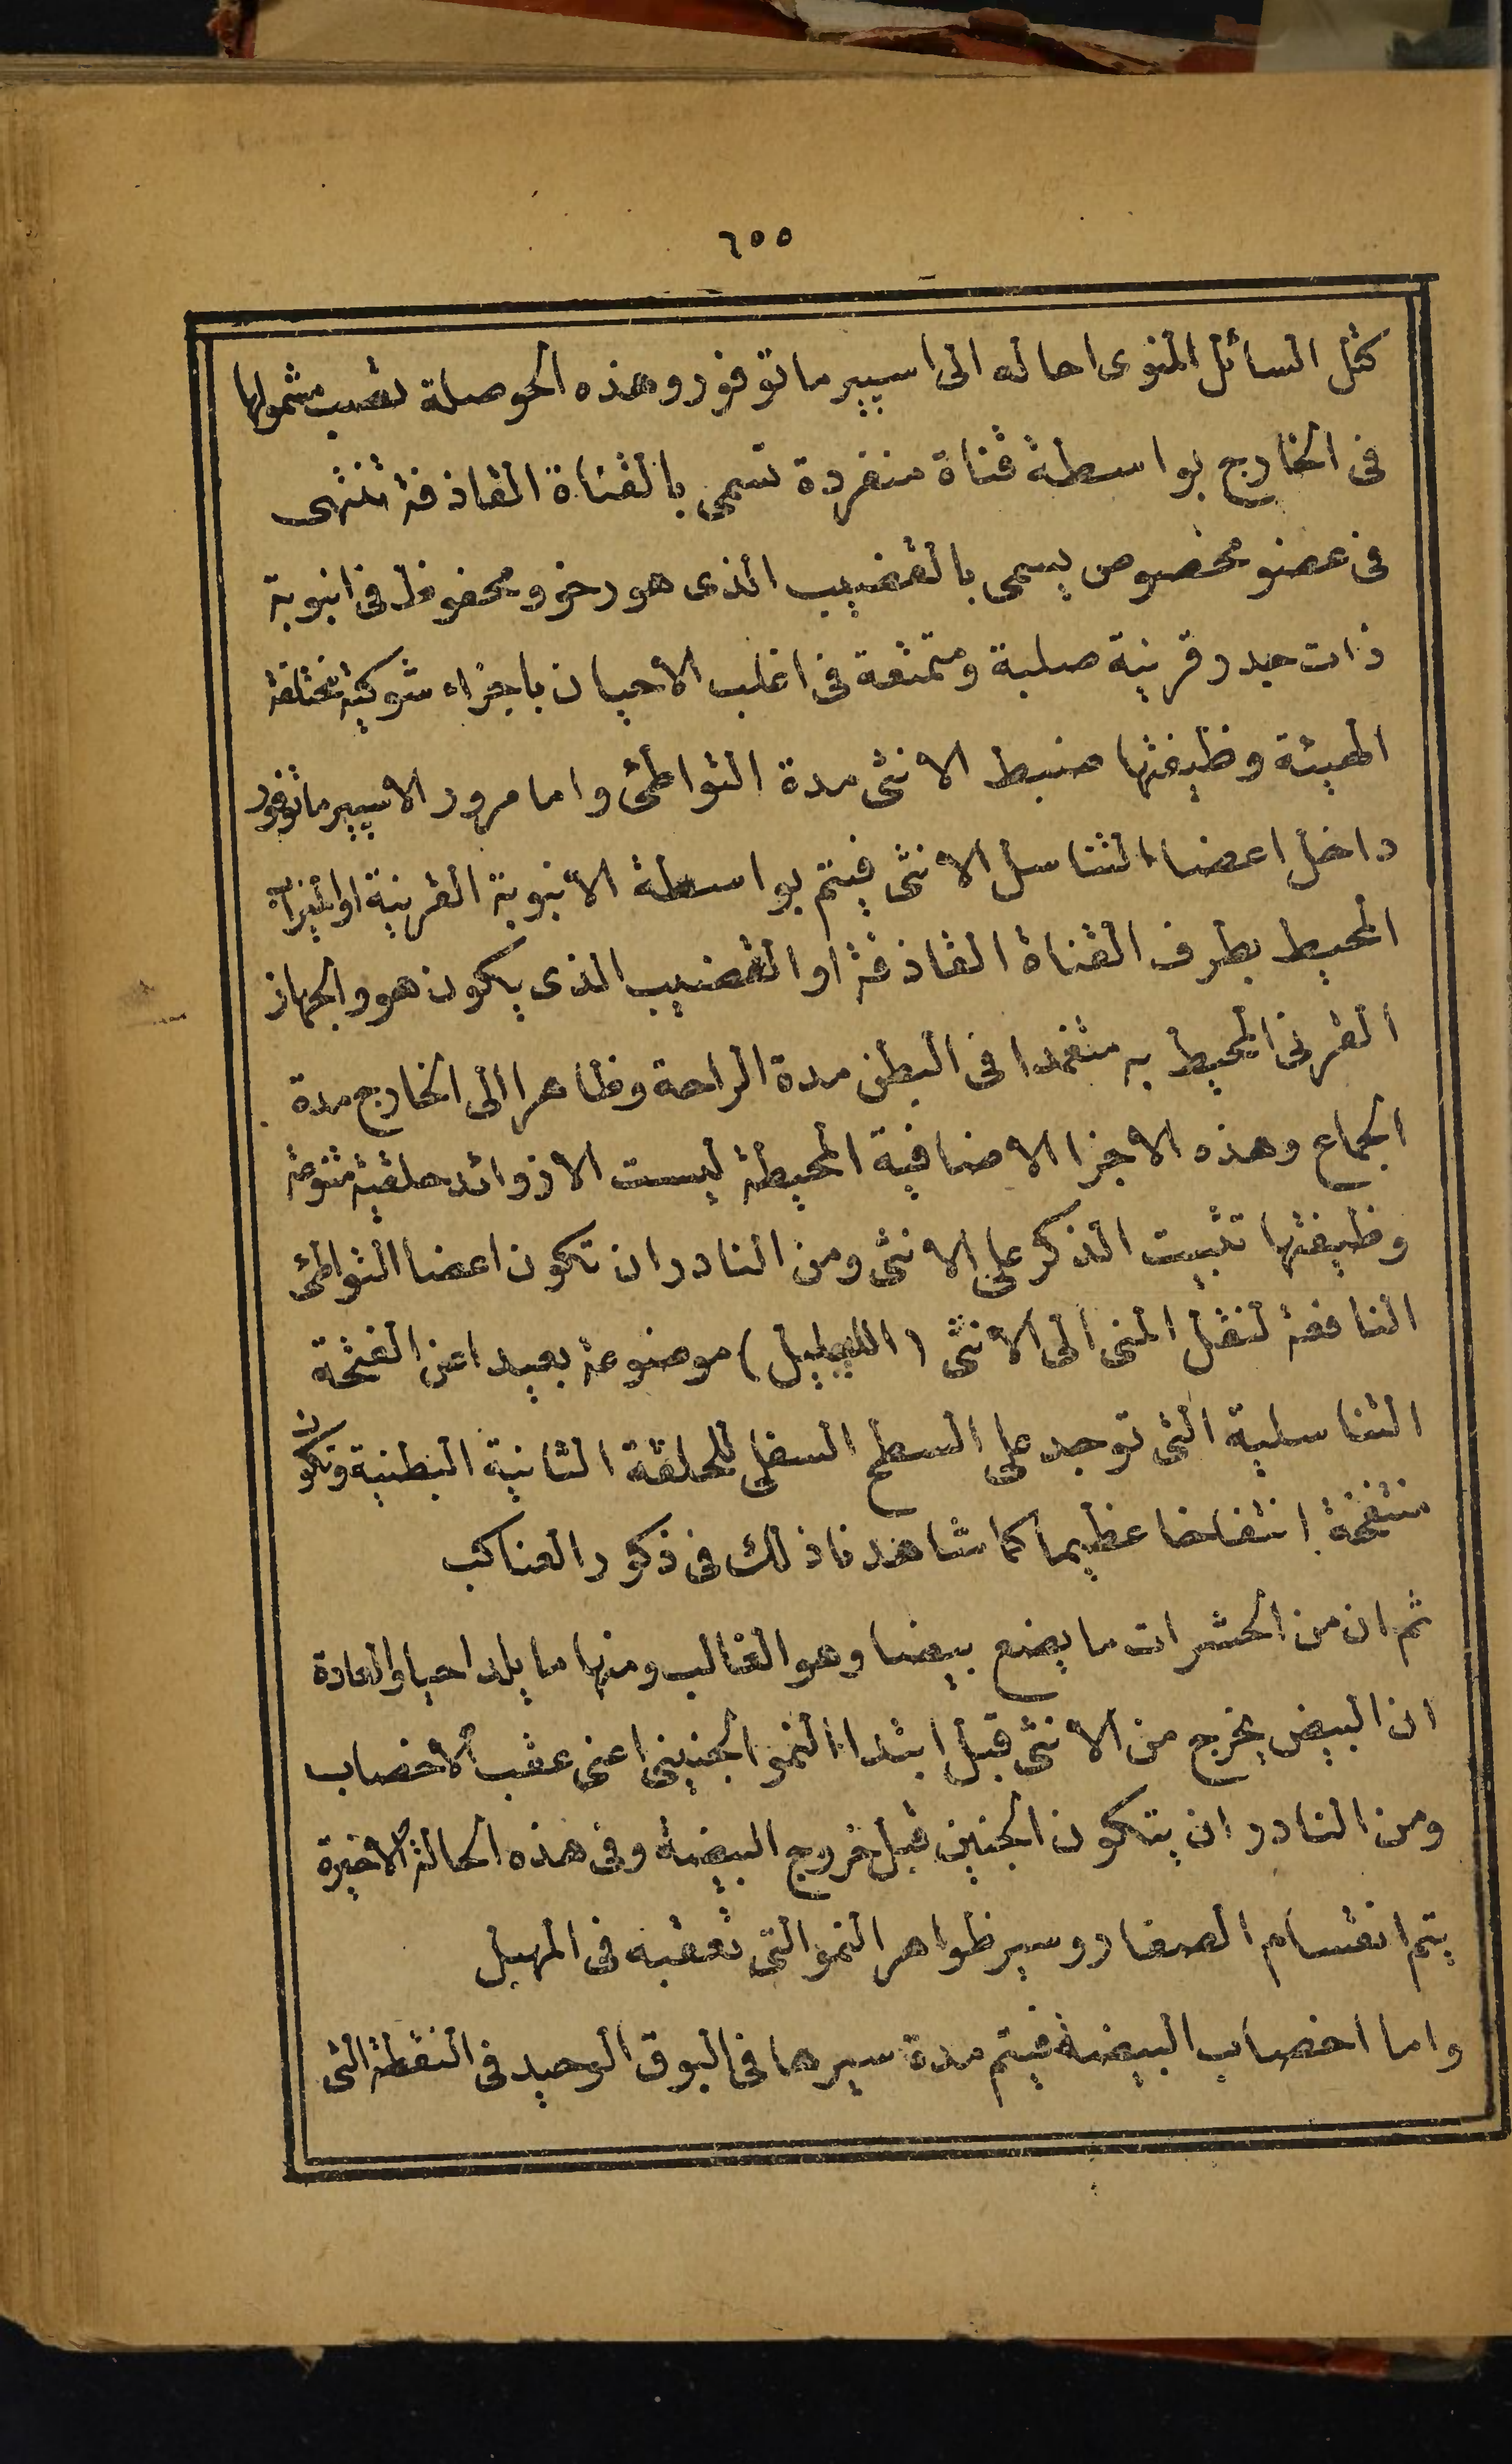 ٦٥٥
كتل السائل المنوى احاله الى اسپيرماتوفور وهذه الحوصلة تصب مشمولها
فى الخارج بواسطة قناة منفردة تسمى بالقناة القاذفة تنتهى
فى عضو مخصوص يسمى بالقضيب الذى هو رخو ومحفوظ فى انبوبة
ذات جدر قرنية صلبة ومتمتعة فى اغلب الاحيان باجزاء شوكية مختلفة
الهيئة وظيفتها ضبط الانثى مدة التواطئ واما مرور الاسپيرماتوفور
داخل اعضاء التناسل الانثى فيتم بواسطة الانبوبة القرنية او الميزاب
المحيط بطرف القناة القاذفة او القضيب الذى يكون هو والجهاز
القرنى المحيط به منغمدا فى البطن مدة الراحة وظاهرا الى الخارج مدة
الجماع وهذه الاجزا الاضافية المحيطة ليست الا زوائد حلقية متنوعة
وظيفتها تثبيت الذكر على الانثى ومن النادر ان تكون اعضا التواطئ
النافعة لنقل المنى الى الانثى (الليبليل) موضوعة بعيدا عن الفتحة
التناسلية التى توجد على السطح السفلى للحلقة الثانية البطنية وتكون
منتفخة انتفاخا عظيما كما شاهدنا ذلك فى ذكور العناكب
ثم ان من الحشرات ما يضع بيضا وهو الغالب ومنها ما يلد احيا والعادة
ان البيض يخرج من الانثى قبل ابتداء النمو الجنينى اعنى عقب الاخصاب
ومن النادر ان يتكون الجنين قبل خروج البيضة وفى هذه الحالة الاخيرة
يتم انقسام الصفار وسير ظواهر النمو التى تعقبه فى المهبل
واما اخصاب البيضة فيتم مدة سيرها فى البوق الوحيد فى النقطة التى